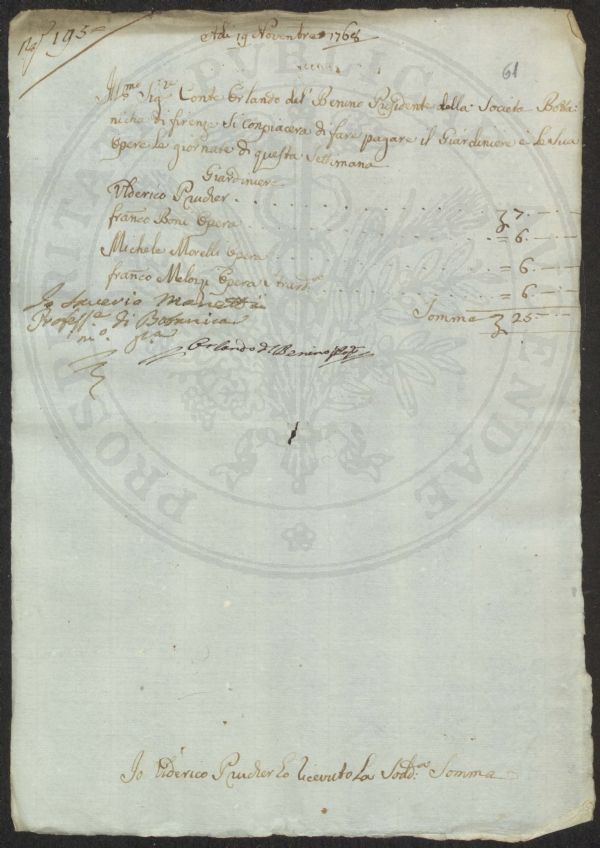 195
Adi 19 Novembre 1768
61
Ill.mo Sig.re Conte Orlando del Benino Presidente della Societa Botta:
niche di firenze Si Conpiacera di fare pagare il Giardiniere e Le Sua
Opere le giornate di questa Settimana
Giardiniere
Uderico Prucher . . . 7. —
franco Boni Opera . . . = 6. —
Michele Morelli Opera . . . = 6. —
franco Melozi Opera . . . = 6. —
Somma 25 —
Io Saverio Manetti
Profess.e di Botanica
m.o p.a
Orlando del Benino
Io Uderico Prucher ho ricevuto La Sodd.a Somma
PROSPERITATI PUBLICAE AUGENDAE